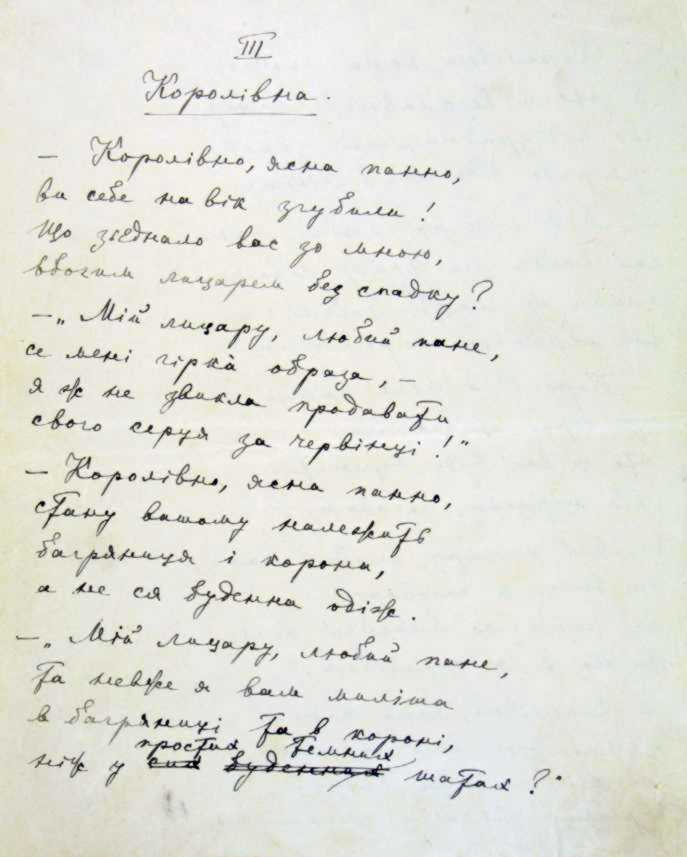 III
Королівна.
— Королівно, ясна панно,
ви себе на вік згубили!
Що зʼєднало вас зо мною,
вбогим лицарем без спадку?
— „Мій лицару, любий пане,
се мені гірка́ образа, —
я ж не звикла продавати
свого серця за червінці!"
— Королівно, ясна панно,
стану вашому належить
багряниця і корона,
а не ся буденна одіж.
— „Мій лицару, любий пане,
та невже я вам миліша
в багряниці та в короні,
простих темних
ніж у сих буденних шатах?"